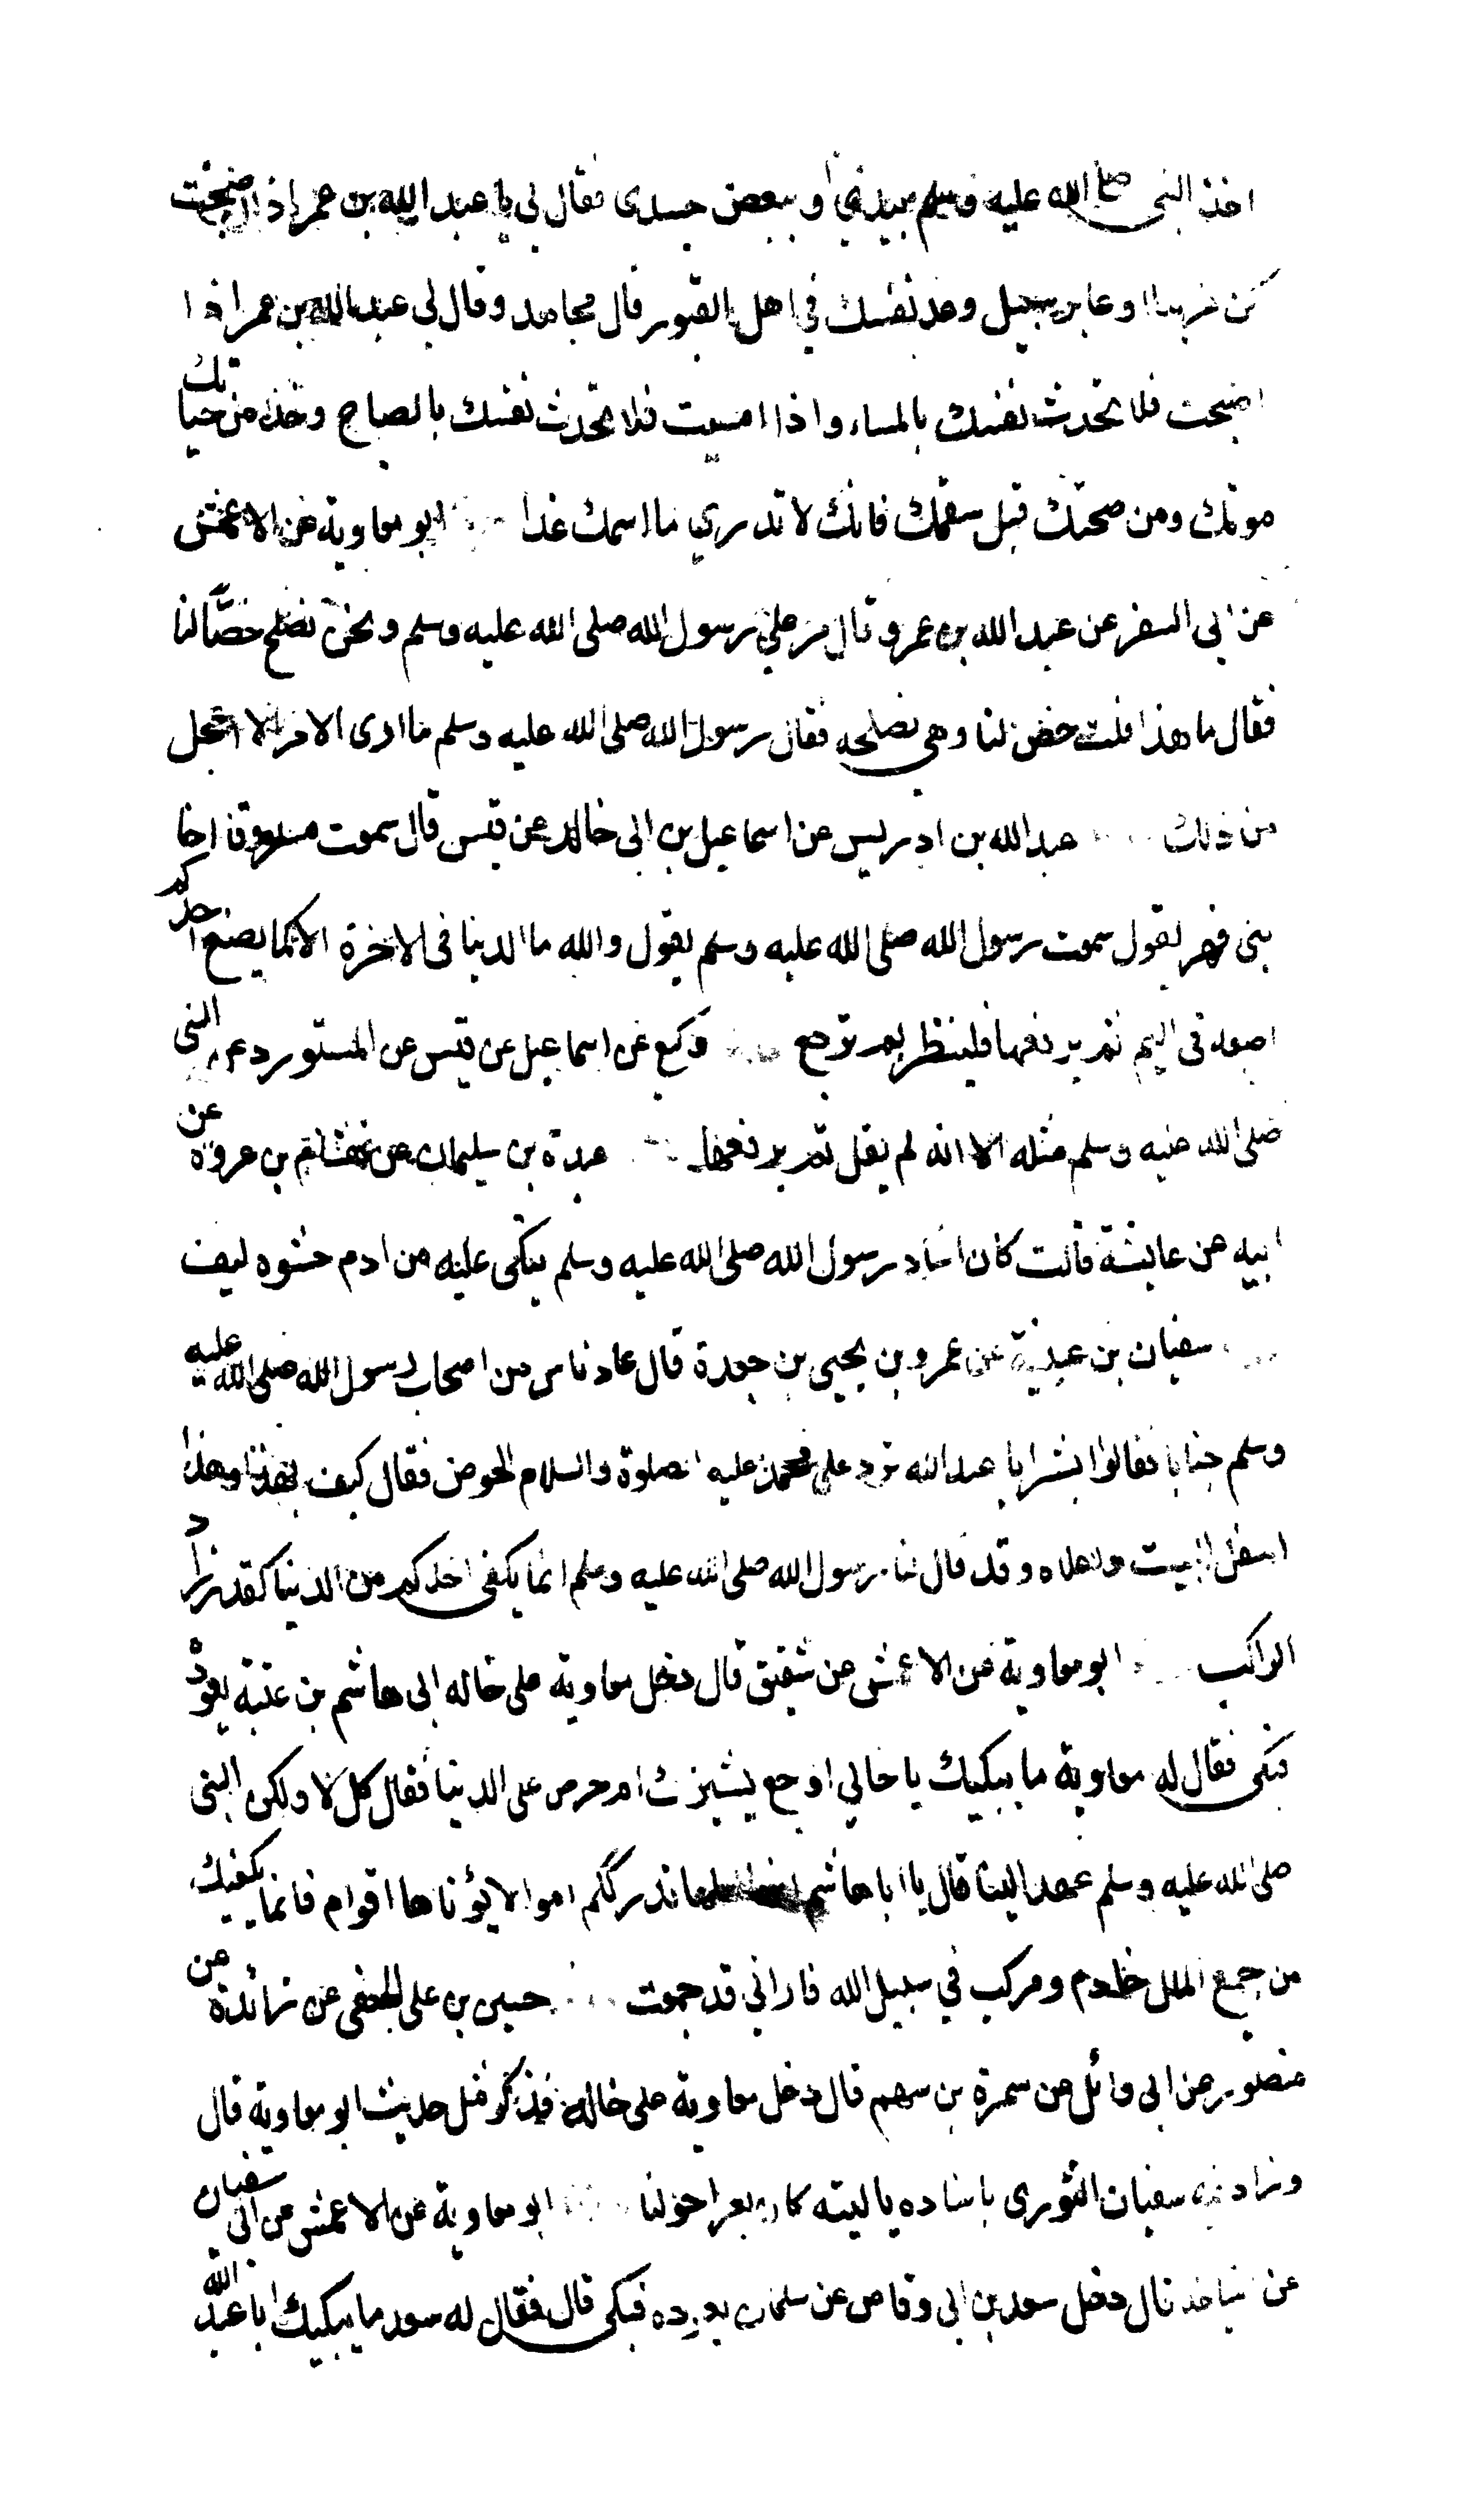 اخذ النبي صلى الله عليه وسلم بيدي او ببعض جسدي فقال لي يا عبد الله بن عمر اذا اصبحت
كن غريبا او عابر سبيل وعد نفسك في اهل القبور قال مجاهد وقال لي عبد الله بن عمر اذا
اصبحت فلا تحدث نفسك بالمساء واذا امسيت فلا تحدث نفسك بالصباح وخذ من حياتك
موتك ومن صحتك قبل سقمك فانك لا تدري ما اسمك غدا ابو معاوية عن الاعمش
عن ابى السفر عن عبد الله بن عمرو قال مر علي رسول الله صلى الله عليه وسلم ونحن نصلح خصا لنا
فقال ما هذا قلت خص لنا وهى نصلحه فقال رسول الله صلى الله عليه وسلم ما ارى الامر الا اعجل
من ذلك عبد الله بن ادريس عن اسماعيل بن ابى خالد عن قيس قال سمعت مستوردا اخا
بنى فهر يقول سمعت رسول الله صلى الله عليه وسلم يقول والله ما الدنيا فى الاخرة الا كما يضع احدكم
اصبعه فى اليم ثم يرفعها فلينظر بم ترجع وكيع عن اسماعيل عن قيس عن المستورد عن النبى
صلى الله عليه وسلم مثله الا انه لم يقل ثم يرفعها عبدة بن سليمان عن هشام بن عروة عن
ابيه عن عايشة قالت كان وساد رسول الله صلى الله عليه وسلم يتكى عليه من ادم حشوه ليف
سفيان بن عيينة عن عمرو بن يحيى بن جعدة قال عاد ناس من اصحاب رسول الله صلى الله عليه
وسلم خبابا فقالوا ابشر ابا عبد الله ترد على محمد عليه الصلوة والسلام الحوض فقال كيف بهذا وهذا
اسفل البيت واعلاه وقد قال لنا رسول الله صلى الله عليه وسلم انما يكفى احدكم من الدنيا كقدر زاد
الراكب ابو معاوية عن الاعمش عن شقيق قال دخل معاوية على خاله ابى هاشم بن عتبة يعوده
فبكى فقال له معاوية ما يبكيك يا خالي اوجع يشئزك ام حرص على الدنيا فقال كل لا ولكن النبى
صلى الله عليه وسلم عهد الينا قال يا ابا هاشم انها لعلها تدرككم اموالا يؤتاها اقوام فانما يكفيك
من جمع المال خادم ومركب في سبيل الله فاراني قد جمعت حسين بن على الجعفى عن زائدة عن
منصور عن ابى وائل عن سمرة بن سهم قال دخل معاوية على خاله فذكر مثل حديث ابو معاوية قال
وزاد فيه سفيان الثورى باسناده يا ليته كان بعرا حولنا ابو معاوية عن الاعمش عن ابى سفيان
عن اشياخه قال دخل سعد بن ابى وقاص عن سلمان يعوده فبكى قال فقال له سعد ما يبكيك ابا عبد الله